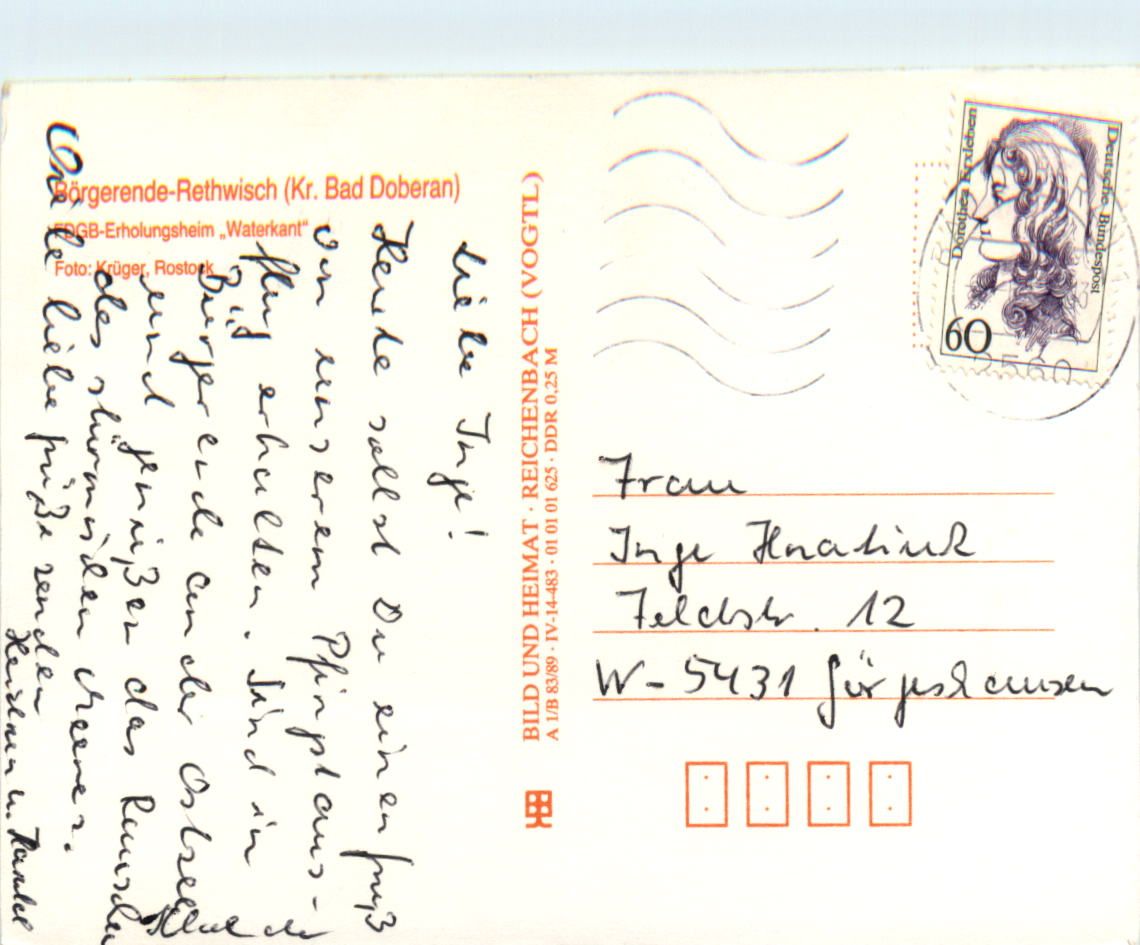 Börgerende-Rethwisch (Kr. Bad Doberan)
FDGB-Erholungsheim „Waterkant“
Foto: Krüger, Rostock
Liebe Inge!
Heute sollst Du einen Gruß
von unserem Pfingstaus-
flug erhalten. Sind in
Börgerende an der Ostsee
und genießen das Rauschen
des stürmischen Meeres.
Viele liebe Grüße senden
BILD UND HEIMAT · REICHENBACH (VOGTL)
A 1/B 83/89 · IV-14-483 · 01 01 01 625 · DDR 0,25 M
Deutsche Bundespost
Dorothea Erxleben
60
2560
Frau
Inge
Feldstr. 12
W-5431 Görgeshausen